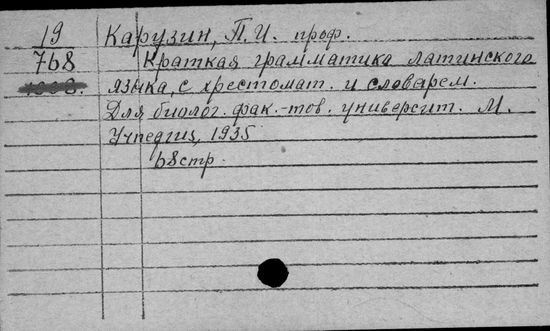 19 Карузин, П. И. проф.
768 Краткая грамматика латинского
языка, с хрестомат. и словарем.
Для биолог. фак.-тов. университ. М.
Учпедгиз, 1935
68 стр.